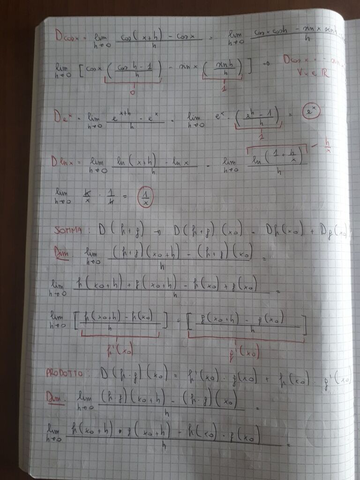 D cos x = lim h→0 cos(x+h) - cos x / h = lim h→0 cos x cos h - sin x sin h
lim h→0 [cos x (cos h - 1 / h) - sin x (sin h / h)] ⇒ D cos x = - sin
0 1 ∀x ∈ R
D e^x = lim h→0 e^(x+h) - e^x / h = lim h→0 e^x (e^h - 1 / h) = e^x
1
D ln x = lim h→0 ln(x+h) - ln x / h = lim h→0 ln(1 + h/x) / h ~ h/x
lim h→0 h/x 1/h = 1/x
SOMMA: D(f+g) ⇒ D(f+g)(x0) = Df(x0) + Dg(x0
Dim lim h→0 (f+g)(x0+h) - (f+g)(x0) / h =
lim h→0 f(x0+h) + g(x0+h) - f(x0) + g(x0) / h =
lim h→0 [f(x0+h) - f(x0) / h] + [g(x0+h) - g(x0) / h]
f'(x0) g'(x0)
PRODOTTO: D(f·g)(x0) = f'(x0) · g(x0) + f(x0) · g'(x
Dim: lim h→0 (f·g)(x0+h) - (f·g)(x0) / h =
lim h→0 f(x0+h) · g(x0+h) - f(x0) · g(x0) / h =